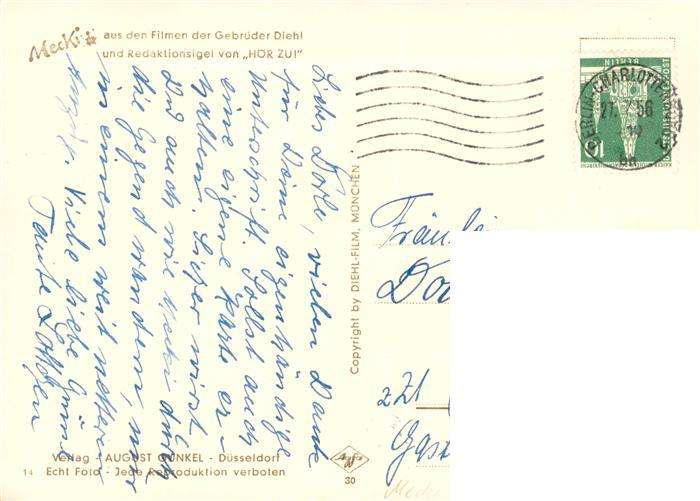 Mecki
aus den Filmen der Gebrüder Diehl
und Redaktionsigel von „HÖR ZU!"
Liebe Dorle, vielen Dank
für Deine eigenhändige
Unterschrift. Sollst auch
eine eigene Karte er-
halten. Sicher wirst
Du auch wie Mecki durch
die Gegend wandern, nur
in einem weit netteren
Viele liebe Grüße
Tante
Copyright by DIEHL-FILM, MÜNCHEN
BERLIN-CHARLOTTENBURG
27.7.56
DEUTSCHE BUNDESPOST
BERLIN
Fräulei
Do
zZt
Gast
Verlag - AUGUST GUNKEL - Düsseldorf
14 Echt Foto - Jede Reproduktion verboten
Agfa
30
Mecki